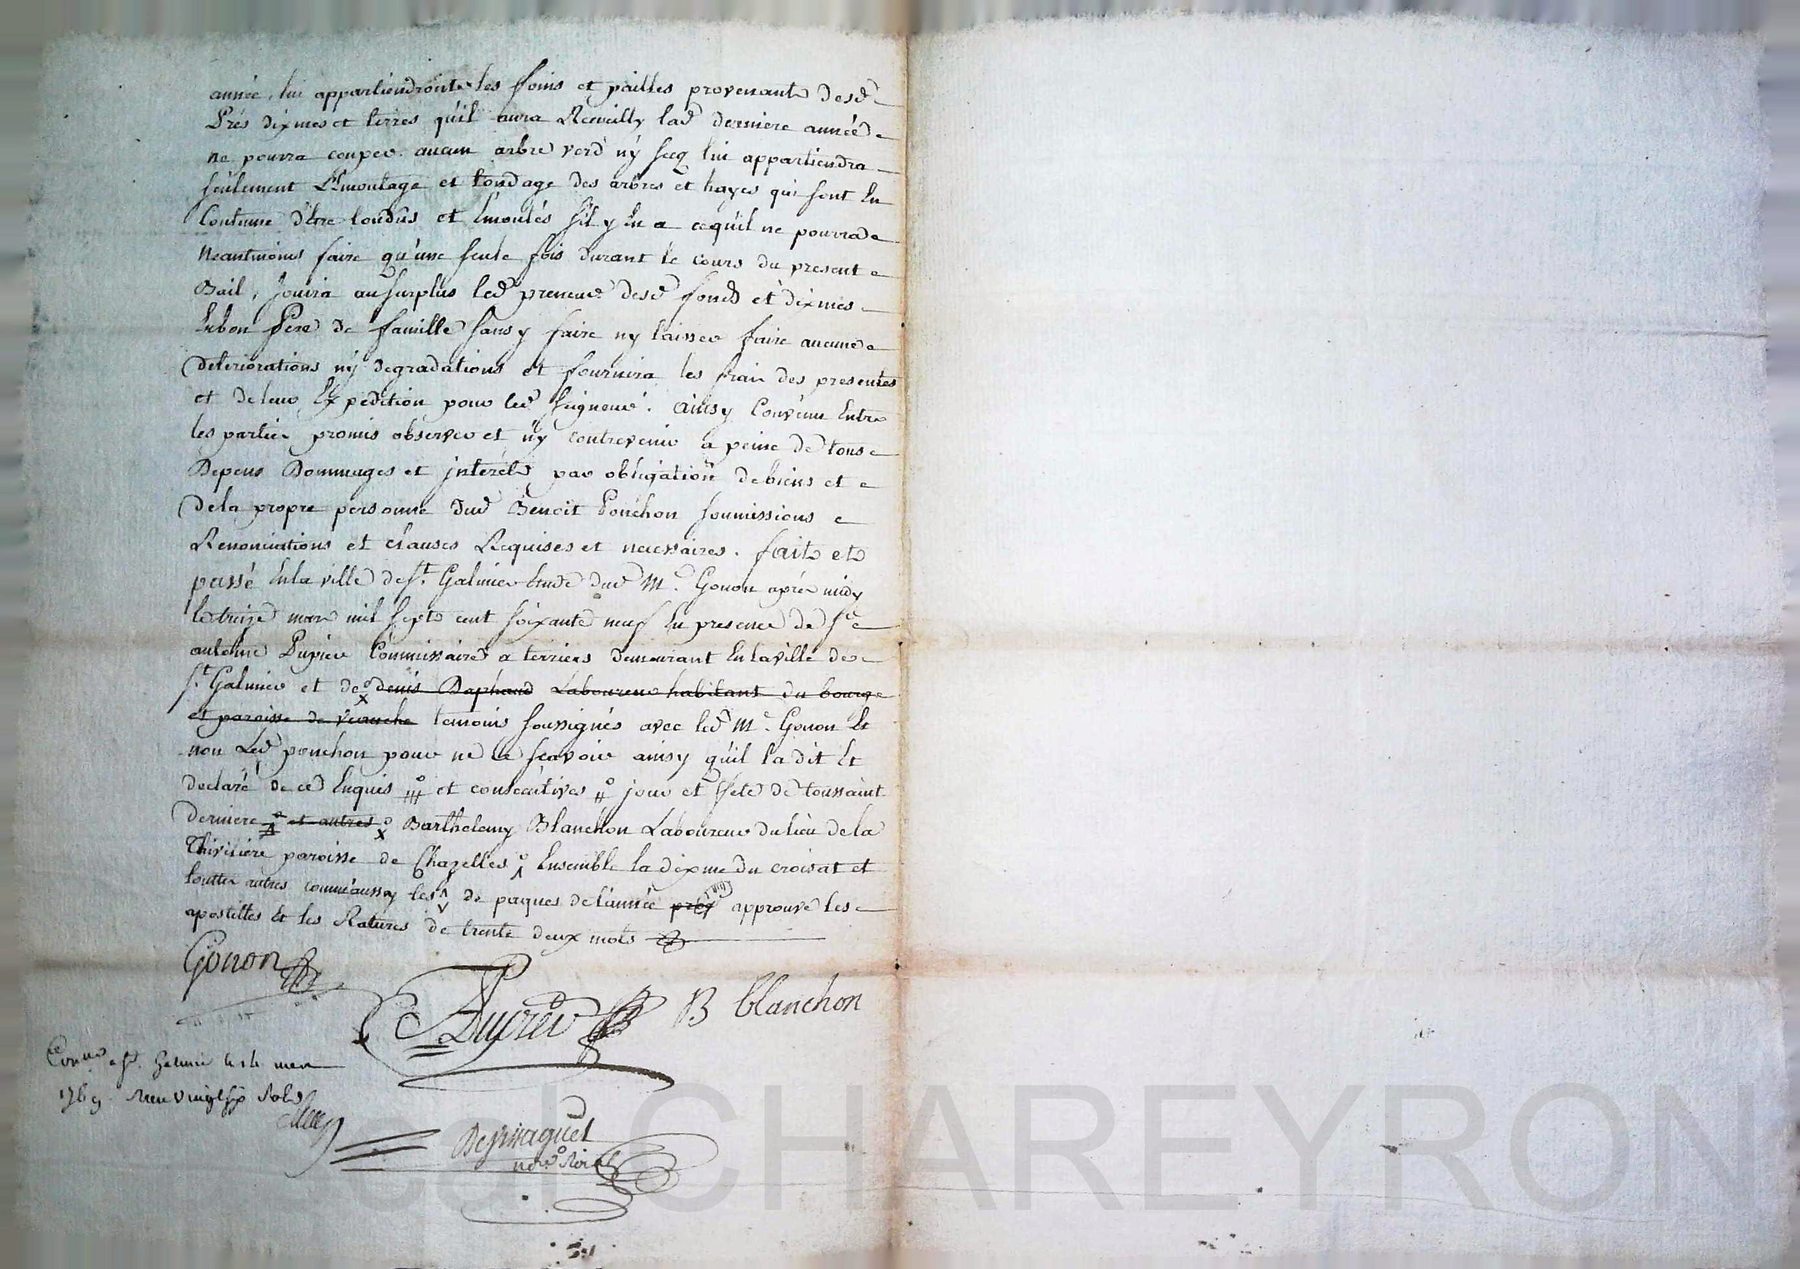 année, lui appartiendronts les foins et pailles provenants desd
Prés dixmes et terres qu'il aura Recueilly lad derniere année
ne pourra couper aucun arbre verd ny secq lui appartiendra
seulement L'Emontage et tondage des arbres et hayes qui sont En
Coutume d'être tondûs et Emontés s'il y En a ce qu'il ne pourra
Neantmoins faire qu'une seule fois durant le cours du present
Bail, Jouira au surplus led preneur desd fonds et dixmes
En bon Pere de famille sans y faire ny laisser faire aucune
deteriorations ny degradations et fournira les frais des presentes
et de leur Expedition pour led seigneur. ainsy Convenu Entre
les parties promis observer et n'y contrevenir a peine de tous
Depens Dommages et interêts par obligation de biens et
de la propre personne dud Benoit Ponchon soumissions
Renonciations et clauses Requises et necessaires. faits et
passé En la ville de St. Galmier Etude dud Me. Gonon après midy
le treize mars mil sept cent soixante neuf En presence de Sr
antoine Dupuier Commissaire a terriers demeurant En la ville de
St. Galmier et de denis Baphaud Laboureur habitant du bourg
et paroisse de veauche temoins soussignés avec led Me. Gonon Et
non Led ponchon pour ne le scavoir ainsy qu'il la dit Et
declaré de ce Enquis et consecutives jour et fete de toussaint
derniere et autres Barthelemy Blanchon Laboureur du lieu de la
Thivisiére paroisse de Chazelles Ensemble la dixme du croisat et
touttes autres comme aussy les de paques de l'année approuvé les
apostilles Et les Ratures de trente deux mots
Gonon
B blanchon
Con a St. Galmier le 14 mars
1769. Reçu vingt six sols
not. Roial
CHAREYRON